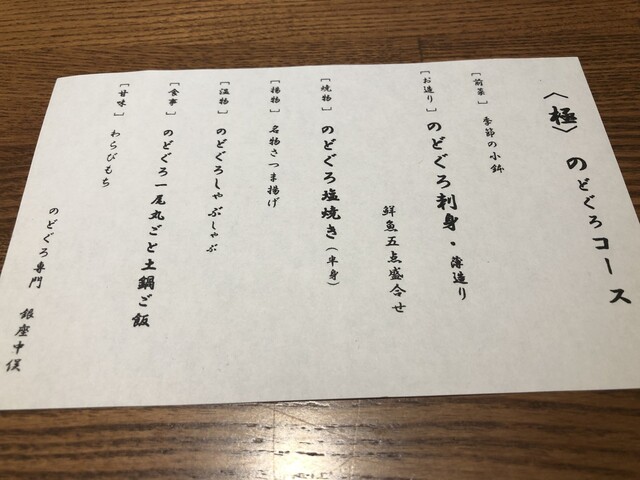 〈極〉 のどぐろコース
[前菜] 季節の小鉢
[お造り] のどぐろ刺身・薄造り
鮮魚五点盛合せ
[焼物] のどぐろ塩焼き(半身)
[揚物] 名物さつま揚げ
[温物] のどぐろしゃぶしゃぶ
[食事] のどぐろ一尾丸ごと土鍋ご飯
[甘味] わらびもち
のどぐろ専門 銀座中俣